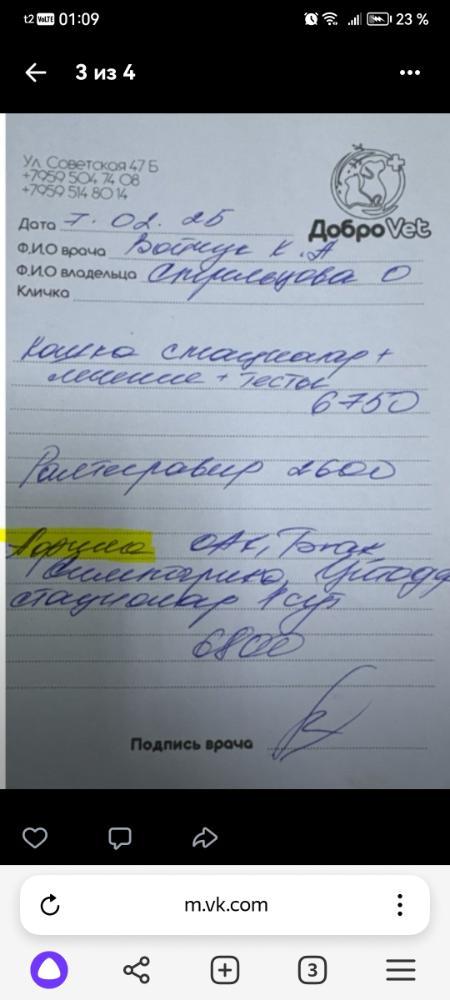 t2 VoLTE 01:09 23 %
3 из 4
Ул Советская 47 Б
+7959 504 74 08
+7959 514 80 14
ДоброVet
Дата 7. 02. 25
Ф.И.О врача К. А
Ф.И.О владельца Стрельцова О
Кличка
Кошка стационар +
лечение + тесты
6750
Ралтегравир 2600
ОАК,
стационар 1 сут
6800
Подпись врача
m.vk.com
3